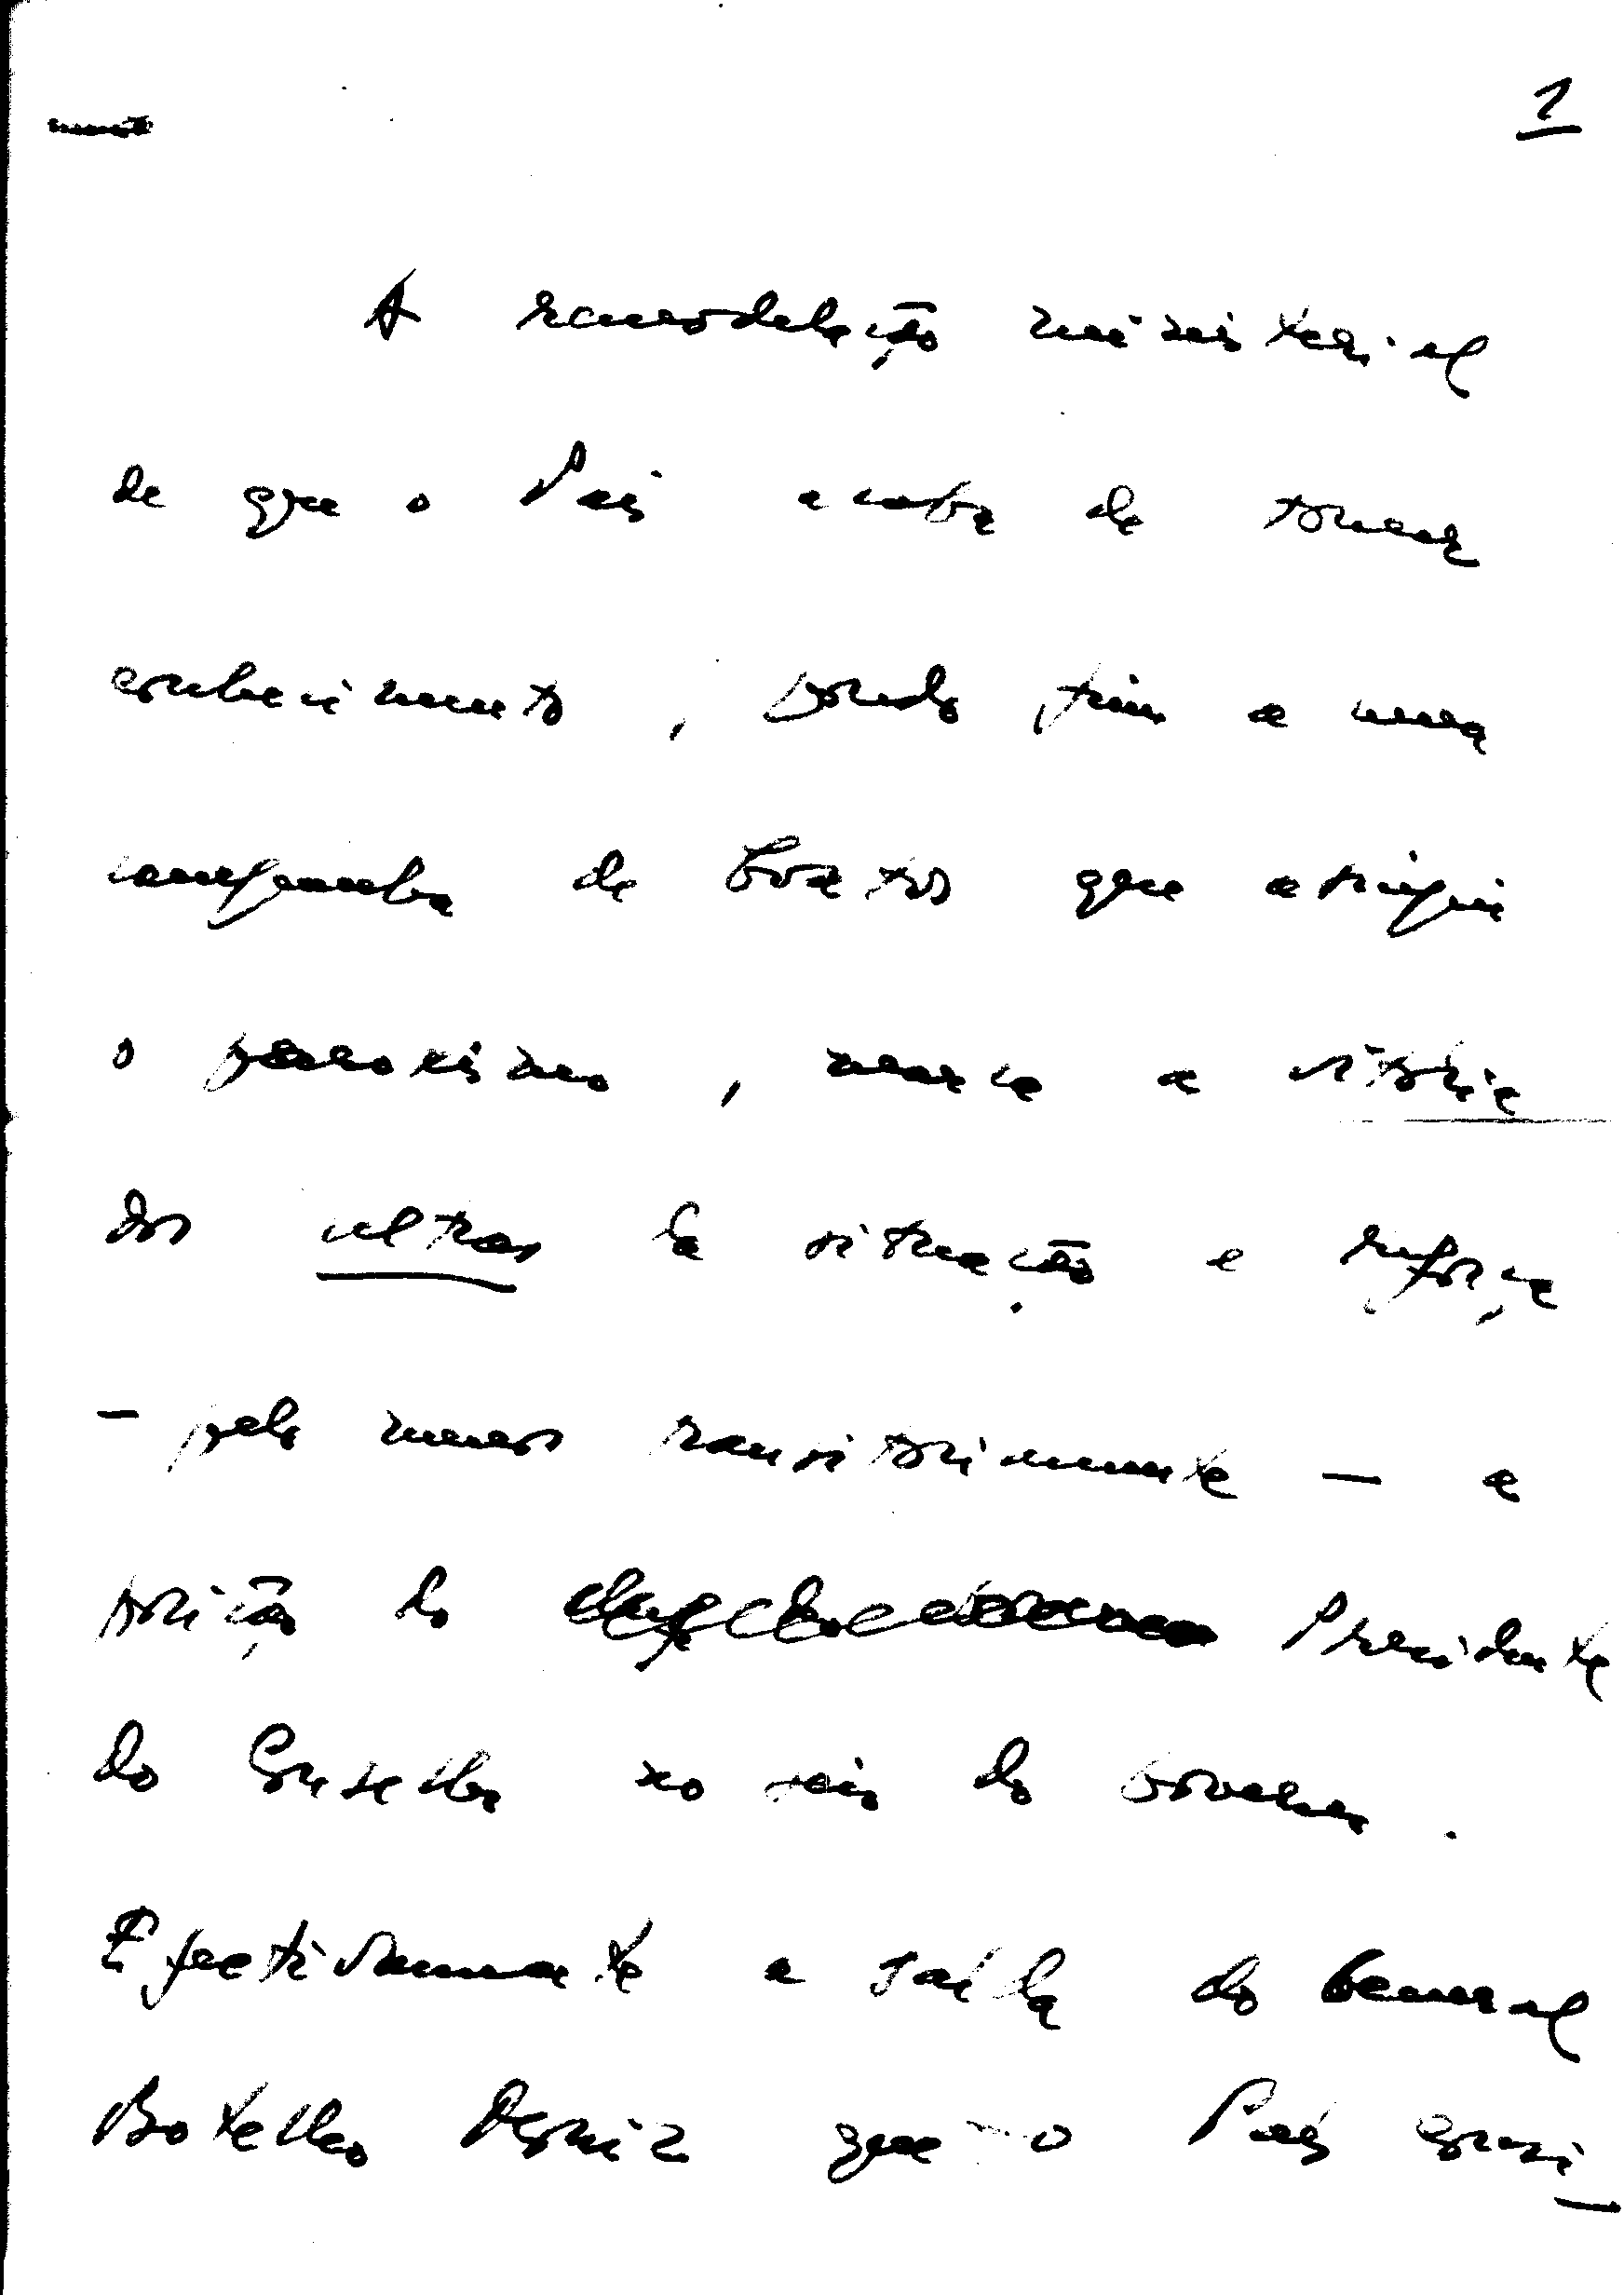 1
A remodelação ministerial
de que o País acaba de tomar
conhecimento, pondo fim a uma
campanha de boatos que atingiu
o paroxismo, marca a vitória
dos ultras da situação e reforça
– pelo menos transitoriamente – a
posição do Presidente
do Conselho no seio do governo.
Efectivamente a saída do General
Botelho Moniz que o País consi-